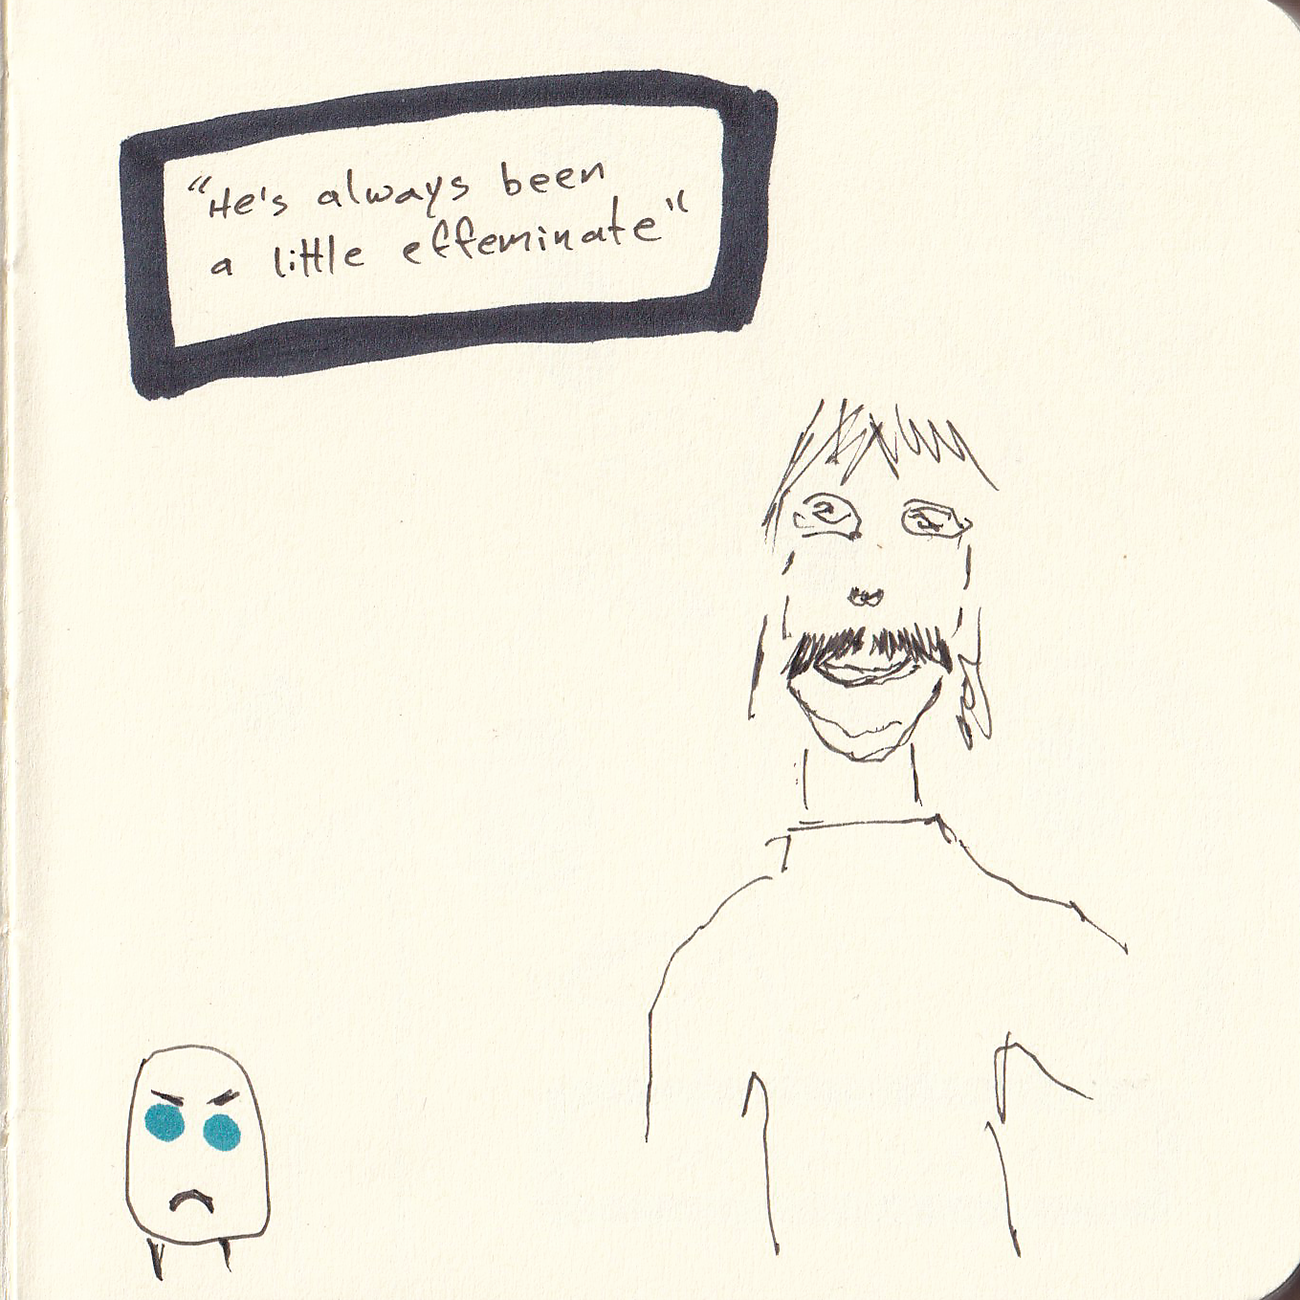 "He's always been
a little effeminate"